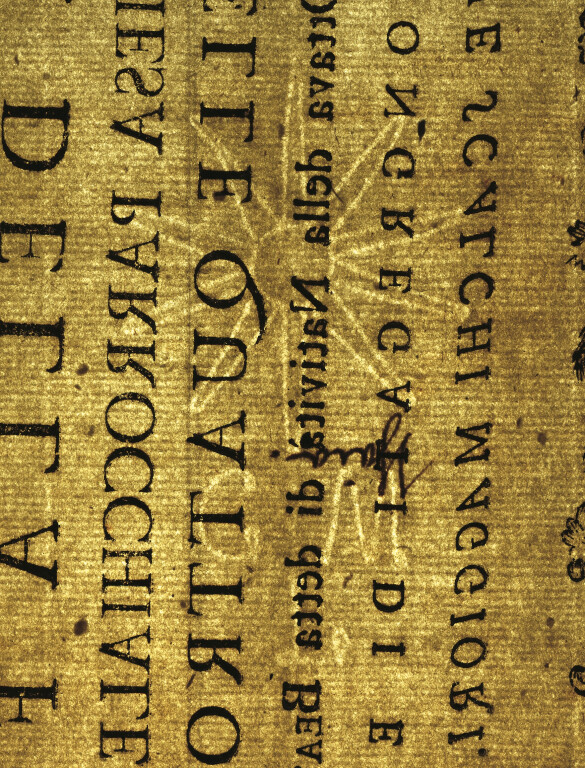 DELLA
IESA PARROCCHIALE
ELLE QUATTRO
Ottava della Natività di detta BEA
ONGREGATI DI E
E SCALCHI MAGGIORI.